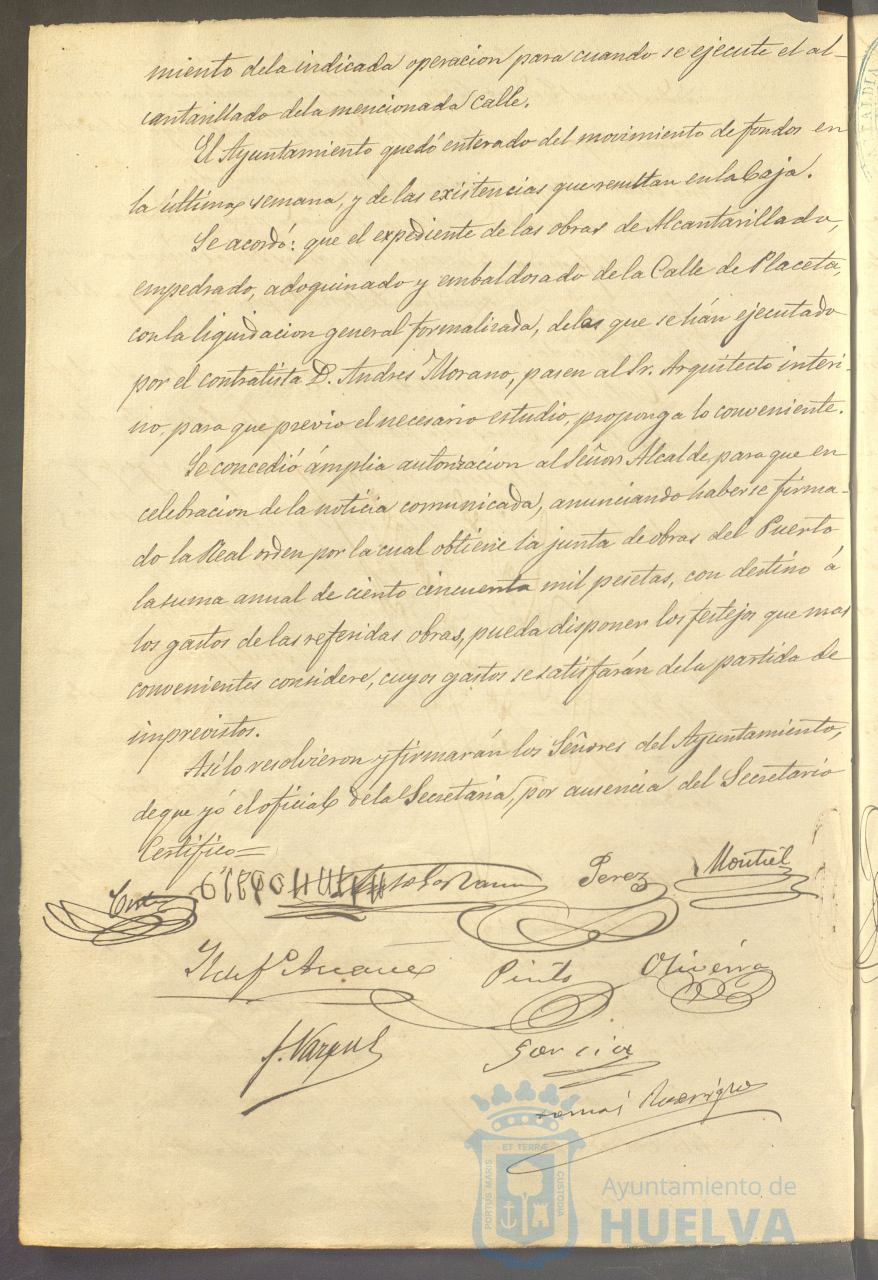 miento dela indicada operacion para cuando se ejecute el al-
cantarillado dela mencionada Calle.
El Ayuntamiento quedó enterado del movimiento de fondos en
la última semana, y de las existencias que resultan en la Caja.
Se acordó: que el expediente de las obras de Alcantarillado,
empedrado, adoquinado y embaldosado de la Calle de Placeta,
con la liquidacion general formalizada, delas que se hán ejecutado
por el contratista D. Andres Morano, pasen al Sr. Arquitecto interi-
no, para que previo el necesario estudio, proponga lo conveniente.
Se concedió ámplia autorizacion al Señor Alcalde, para que en
celebracion de la noticia comunicada, anunciando haberse firma-
do la Real orden por la cual obtiene la junta de obras del Puerto
la suma anual de ciento cincuenta mil pesetas, con destino á
los gastos de las referidas obras, pueda disponer los festejos que mas
convenientes considere, cuyos gastos se satisfarán dela partida de
imprevistos.
Asi lo resolvieron y firmarán los Señores del Ayuntamiento,
de que yó el oficial dela Secretaria, por ausencia del Secretario
Certifico=
Perez Montiel
Pinto Oliveira
J. Vargas Garcia
Tomás Rodriguez
PORTUS MARIS ET TERRÆ CUSTODIA
Ayuntamiento de
HUELVA